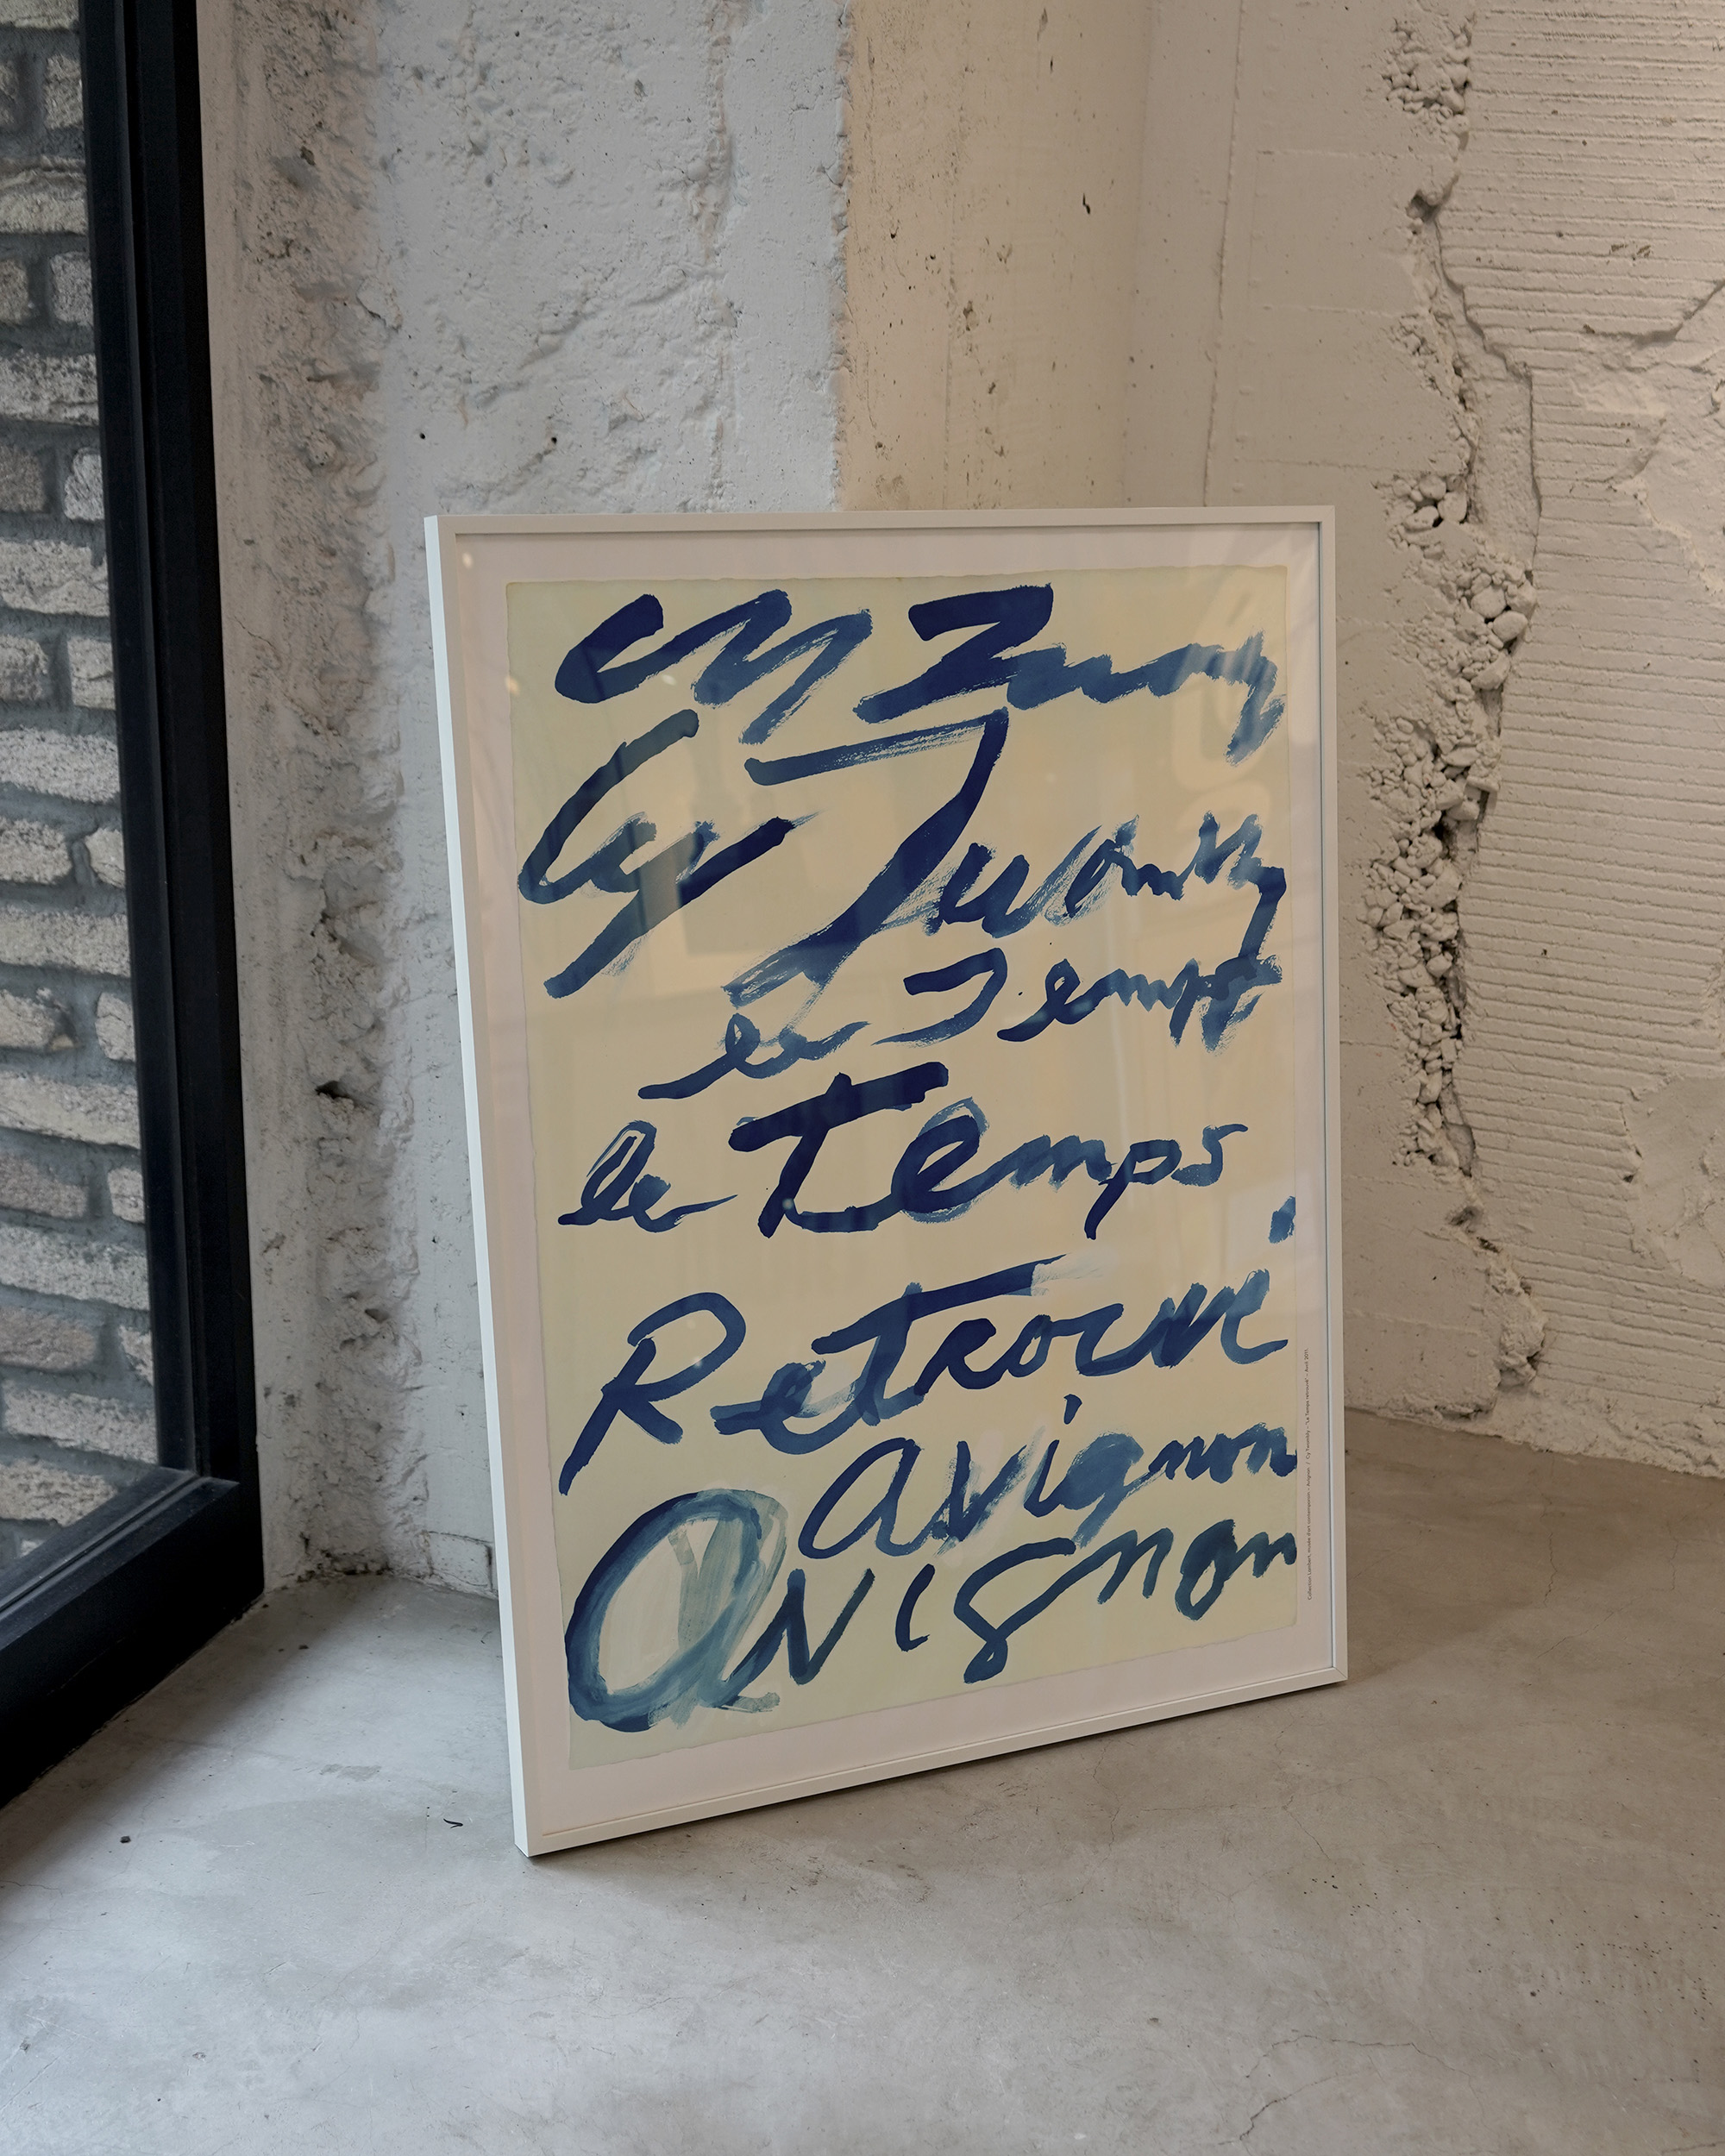 Cy Twomy
Cy Twombly
le Temps
le Temps
Retrouvé
avignon
avignon
Collection Lambert, musée d'art contemporain - Avignon / Cy Twombly - "Le Temps retrouvé" - Avril 2011